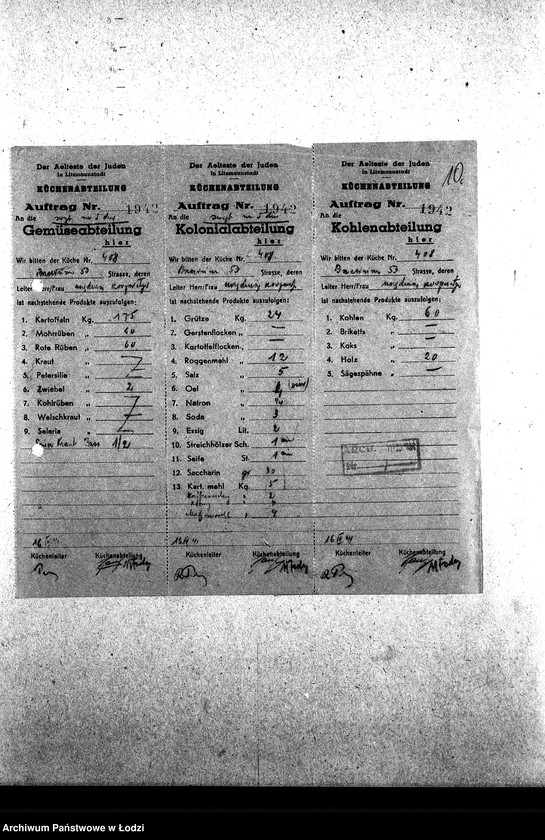 10.
Der Aelteste der Juden
in Litzmannstadt
KÜCHENABTEILUNG
Auftrag Nr. 1942
An die
Gemüseabteilung
hier
Wir bitten der Küche Nr. 408
53 Strasse, deren
Leiter Herr/Frau
ist nachstehende Produkte auszufolgen:
1. Kartoffeln Kg. 175
2. Mohrrüben „ 60
3. Rote Rüben „ 60
4. Kraut „
5. Petersilie „
6. Zwiebel „ 2
7. Kohlrüben „
8. Welschkraut „
9. Selerie „
Kraut Fass 1/2
16 IV 41
Küchenleiter Küchenabteilung
Der Aelteste der Juden
in Litzmannstadt
KÜCHENABTEILUNG
Auftrag Nr. 1942
An die
Kolonialabteilung
hier
Wir bitten der Küche Nr. 408
53 Strasse, deren
Leiter Herr/Frau
ist nachstehende Produkte auszufolgen:
1. Grütze Kg. 24
2. Gerstenflocken „ —
3. Kartoffelflocken „ —
4. Roggenmehl „ 12
5. Salz „ 5
6. Oel „
7. Natron „
8. Soda „ 3
9. Essig Lit. 2
10. Streichhölzer Sch. 1
11. Seife St. 1
12. Saccharin gr 30
13. Kart. mehl Kg. 5
„ 2
„ 4
16 IV 41
Küchenleiter Küchenabteilung
Der Aelteste der Juden
in Litzmannstadt
KÜCHENABTEILUNG
Auftrag Nr. 1942
An die
Kohlenabteilung
hier
Wir bitten der Küche Nr. 408
53 Strasse, deren
Leiter Herr/Frau
ist nachstehende Produkte auszufolgen:
1. Kohlen Kg. 60
2. Briketts „ —
3. Koks „ —
4. Holz „ 20
5. Sägespähne „ —
16 IV 41
Küchenleiter Küchenabteilung
Archiwum Państwowe w Łodzi